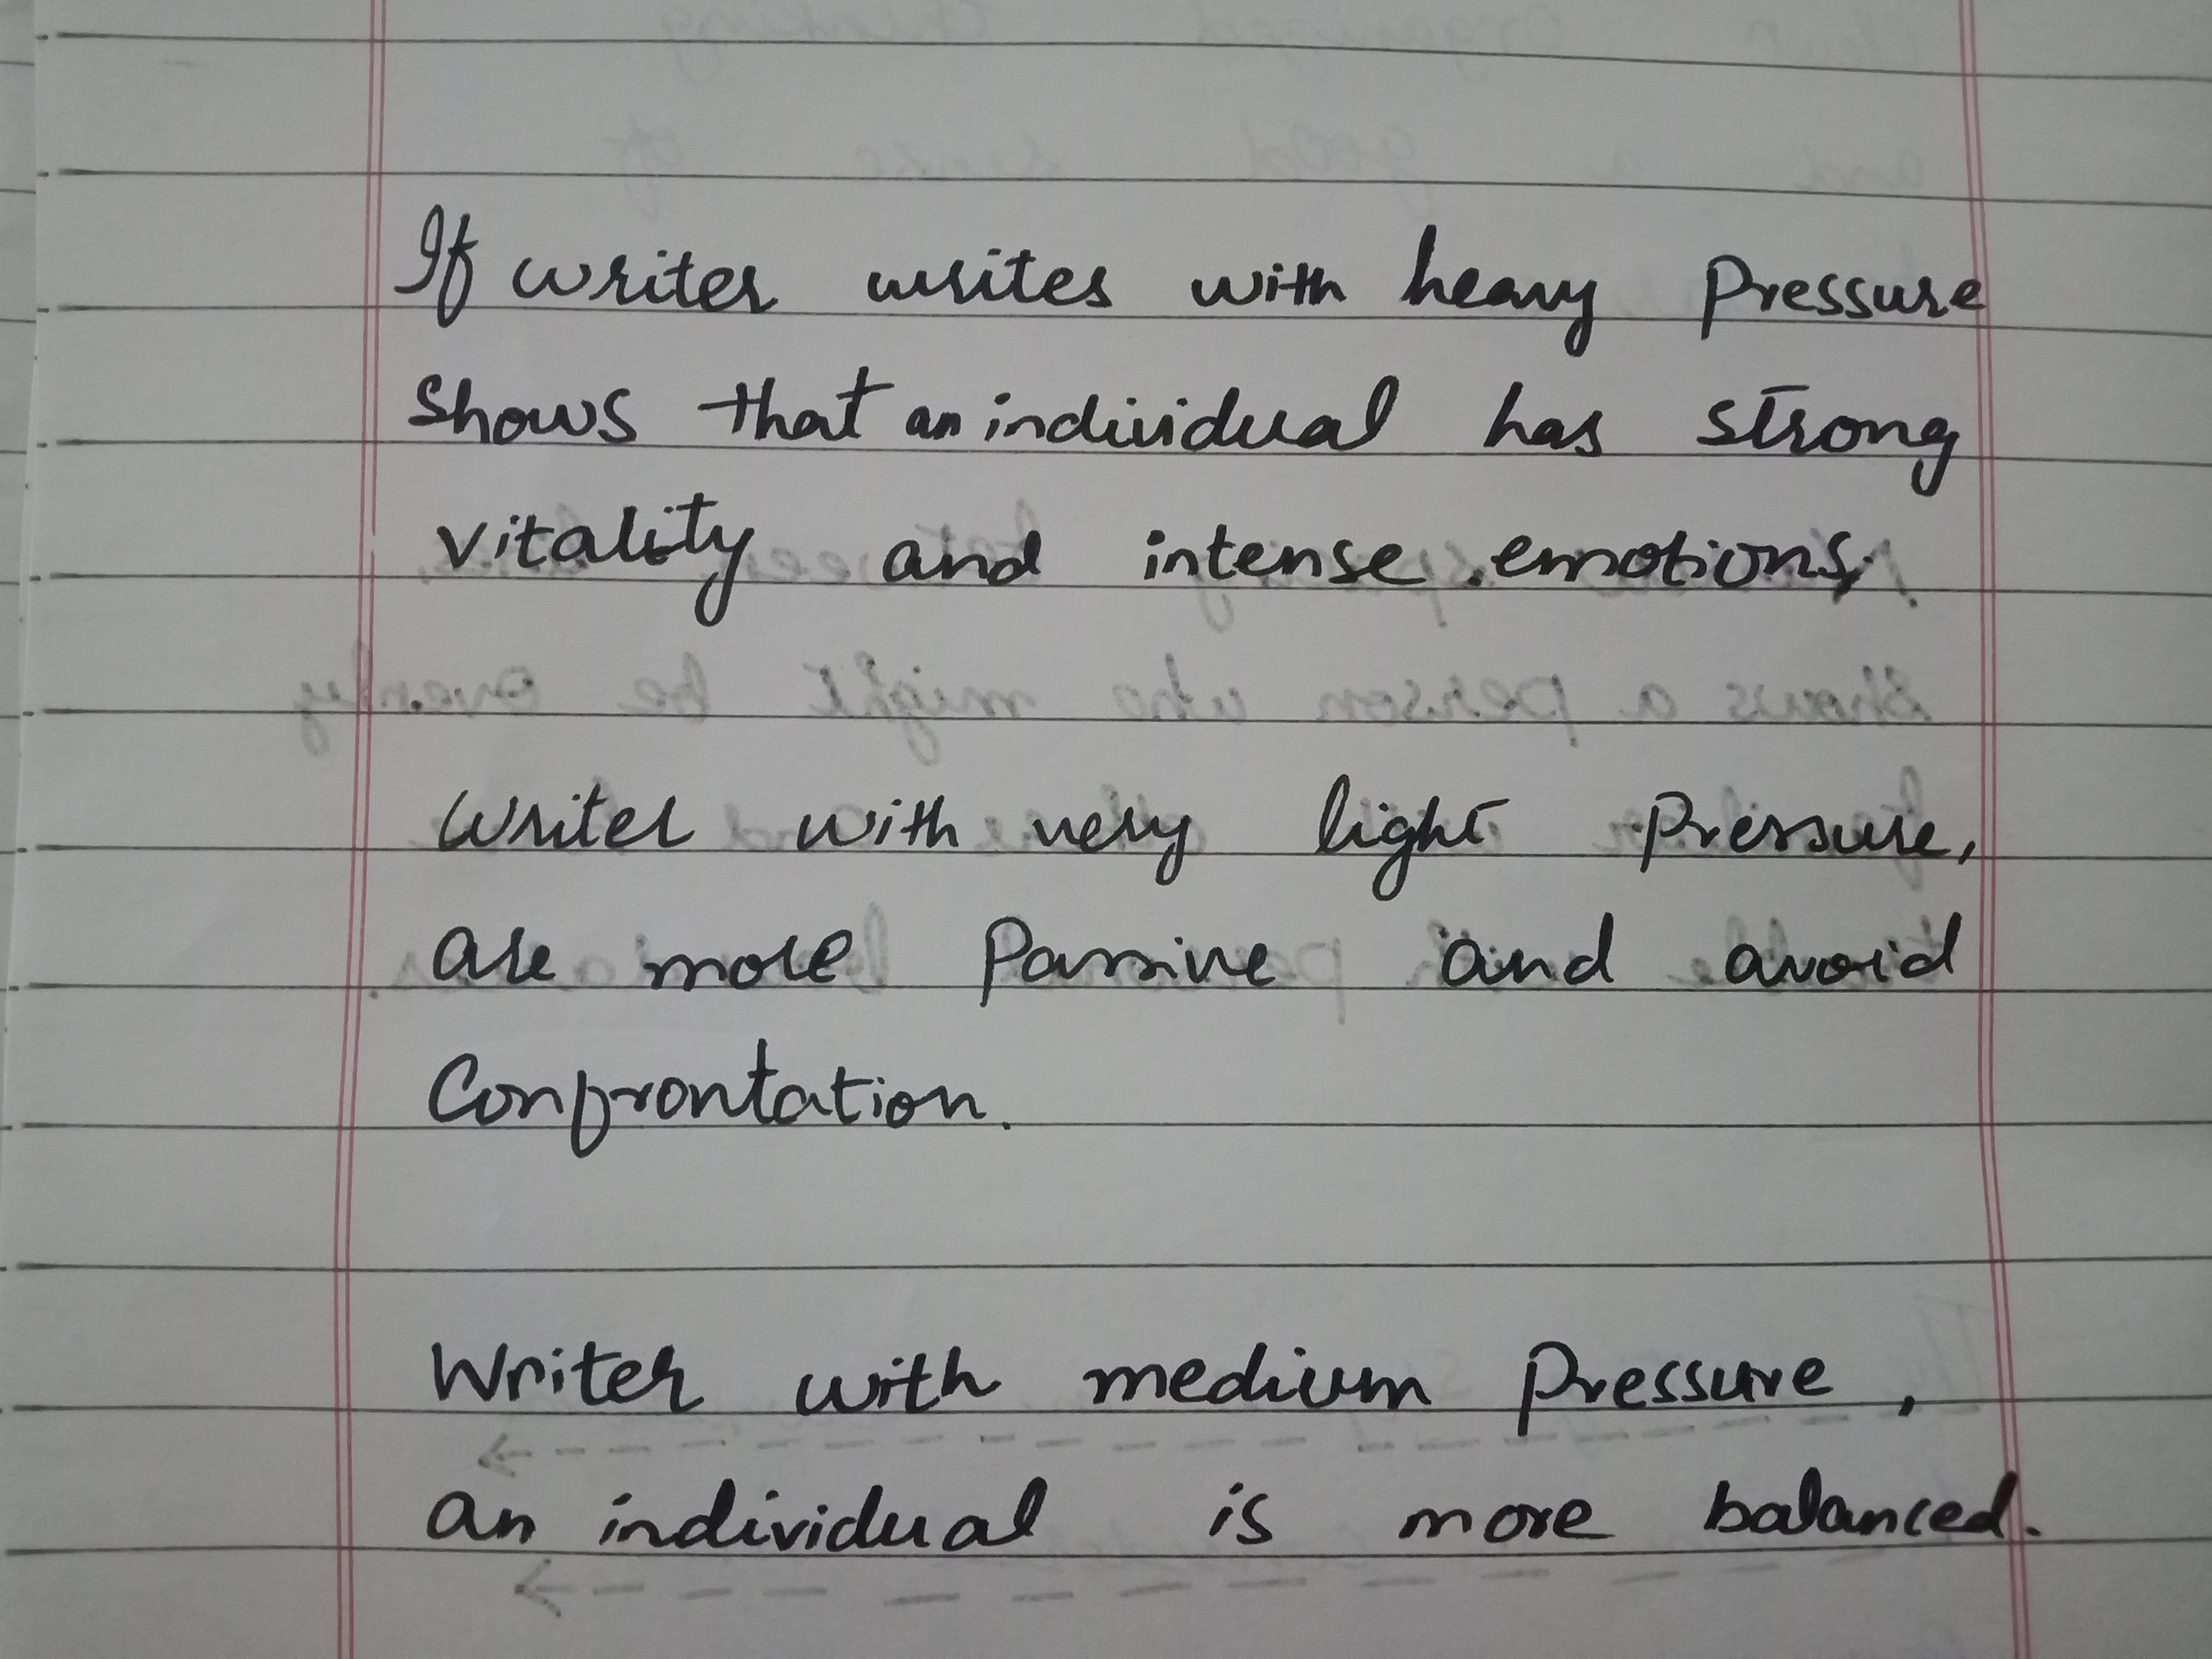 If writer writes with heavy Pressure
Shows that an individual has strong
vitality and intense emotions.
Writer with very light Pressure,
are more Passive and avoid
Confrontation.
Writer with medium Pressure,
an individual is more balanced.